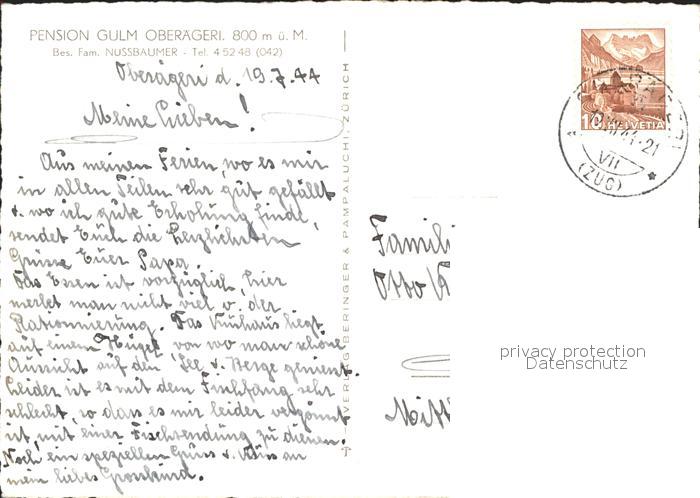 PENSION GULM OBERÄGERI. 800 m ü. M.
Bes. Fam. NUSSBAUMER - Tel. 4 52 48 (042)
Oberägeri d. 19.7.44
Meine Lieben!
Aus meinen Ferien, wo es mir
in allen Teilen sehr gut gefällt
u. wo ich gute Erholung finde,
sendet Euch die herzlichsten
Grüsse Euer Papa.
Das Essen ist vorzüglich, hier
merkt man nicht viel v. der
Rationierung. Das Kurhaus liegt
auf einem Hügel, von wo man schöne
Aussicht auf den See u. Berge geniesst.
Leider ist es mit dem Fischfang sehr
schlecht, so dass es mir leider vergönnt
ist, mit einer Fischsendung zu dienen.
Noch ein speziellen Gruss u. Kuss an
mein liebes Grosskind.
VERLAG BERINGER & PAMPALUCHI, ZÜRICH
10 HELVETIA
OBERÄGERI
VII.44-21
VII
(ZUG)
Famili
Otto
Mitt
privacy protection
Datenschutz